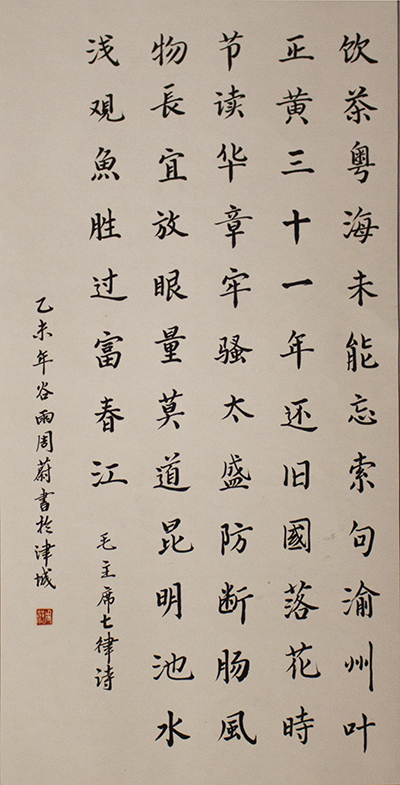 饮茶粤海未能忘索句渝州叶
正黄三十一年还旧國落花時
节读华章牢骚太盛防断肠風
物長宜放眼量莫道昆明池水
浅观魚胜过富春江
毛主席七律诗
乙未年谷雨周蔚書於津城